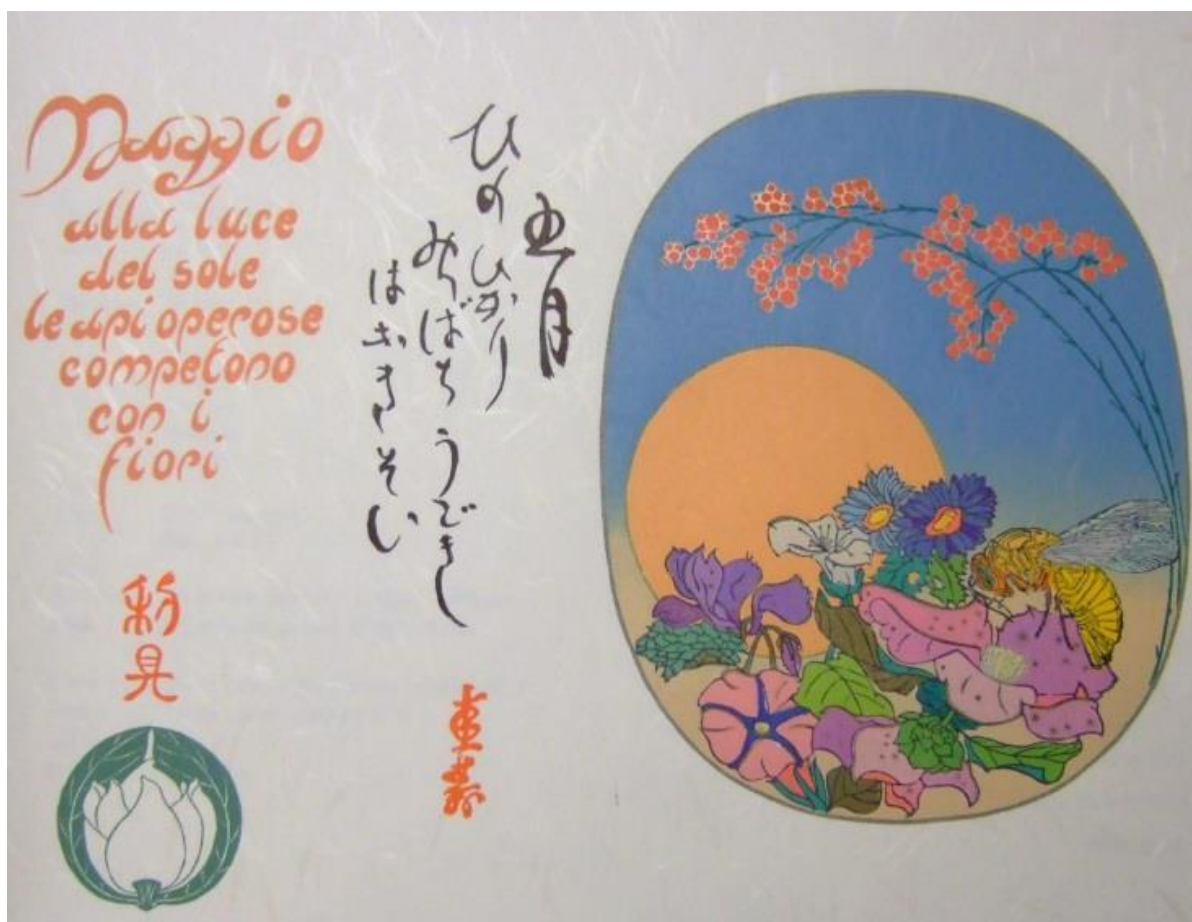 Maggio
alla luce
del sole
le api operose
competono
con i
fiori
五月
ひのひかり
みつばち うごきし
はなきそい